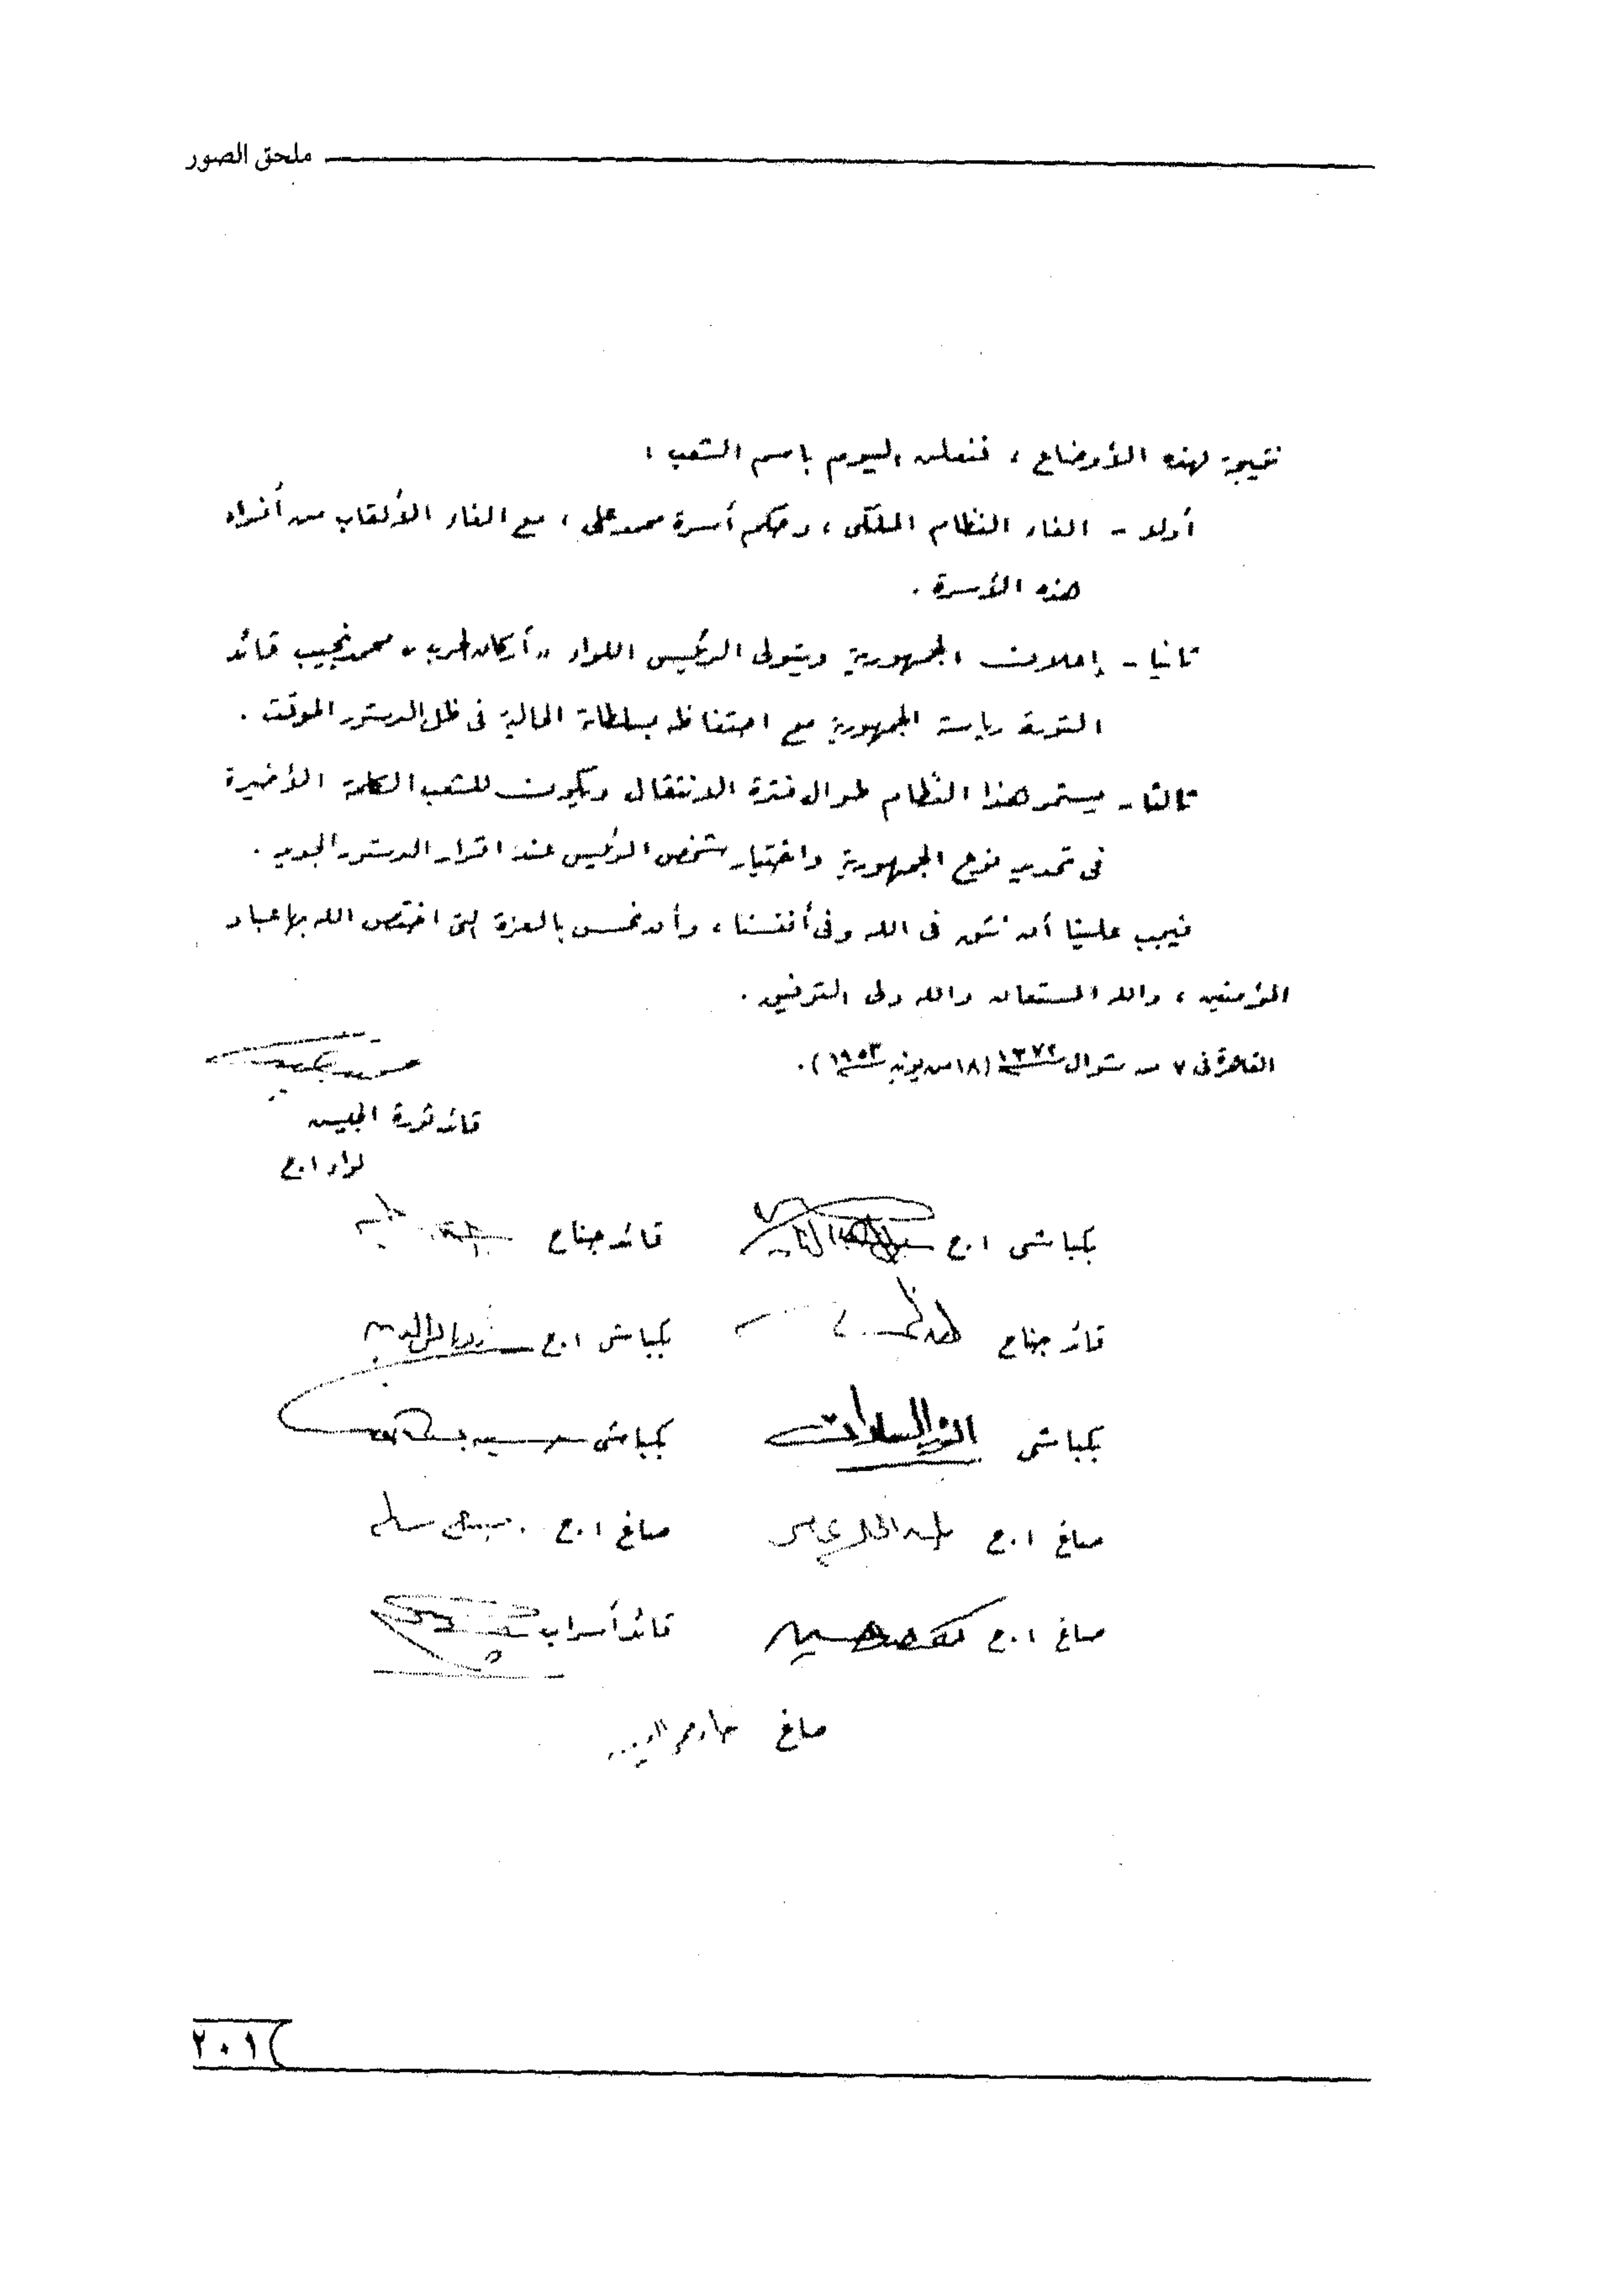 ملحق الصور
نتيجة لهذه الأوضاع ، فنعلن اليوم باسم الشعب :
أولا - الغاء النظام الملكى ، وحكم أسرة محمد على ، مع الغاء الألقاب من أفراد
هذه الأسرة .
ثانيا - إعلان الجمهورية ويتولى الرئيس اللواء " أركان حرب " محمد نجيب قائد
الثورة رياسة الجمهورية مع احتفاظه بسلطاته الحالية فى ظل الدستور المؤقت .
ثالثا - يستمر هذا النظام طوال فترة الانتقال ويكون للشعب الكلمة الأخيرة
فى تحديد نوع الجمهورية واختيار شخص الرئيس عند اقرار الدستور الجديد .
فيجب علينا أن نثق فى الله وفى أنفسنا ، وأن نحس بالعزة التى اختص الله بها عباده
المؤمنين ، والله المستعان والله ولى التوفيق .
القاهرة فى ٧ من شوال ١٣٧٢ (١٨ من يونيه ١٩٥٣) .
محمد نجيب
قائد ثورة الجيش
لواء ا.ح
بكباشى ا.ح جمال عبد الناصر قائد جناح
قائد جناح بكباشى ا.ح زكريا محيى الدين
بكباشى أنور السادات بكباشى حسين
صاغ ا.ح عبد الحكيم عامر صاغ ا.ح صلاح سالم
صاغ ا.ح كمال حسين قائد أسراب
صاغ خالد محيى الدين
٢٠١